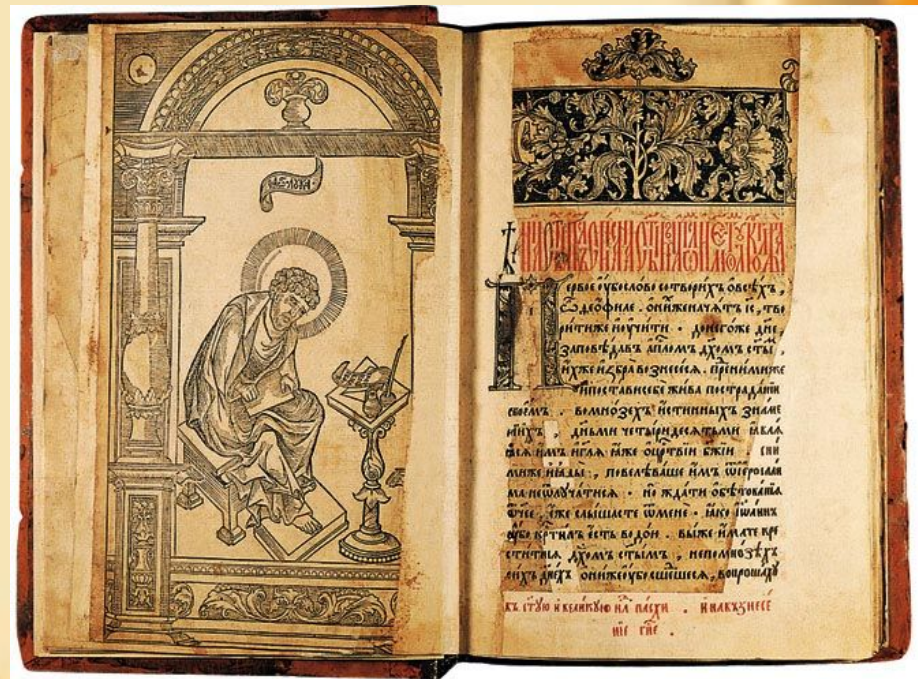 лꙋка
Первое ѹ҆бо слово сотворихъ ѡ҆ всѣхъ,
ѽ ѳео́филе. ѡ҆ ни́хже начѧ́тъ і҆с, тво
ри́тиже и҆ ѹ҆чи́ти. до негоже дн҃е,
заповѣ́дав ап҃лѡмъ дх҃омъ ст҃ы,
и҆́хже и҆збра̀ вознесе́сѧ. пред ни́ми же
и҆ поста́ви себѐ жи́ва по страда́нїи
свое́мъ. во мно́зехъ и҆́стинныхъ зна́ме
нїихъ, дньми четы́ридесѧтьми ꙗ҆влѧ
ѧсѧ и҆̀мъ и҆ гл҃ѧ ꙗ҆́же ѡ҆ црⷭ҇твїи бж҃їи. с ни
ми же и҆ ꙗ҆ды̀, повелѣва́ше и҆̀мъ ѿ і҆еросали
ма не ѿлꙋча́тисѧ. но жда́ти ѡ҆бѣтова́нїѧ
ѻ҆́ч҃ее, е҆́же слы́шасте ѿ менѐ. ꙗ҆́ко і҆ѡа́ннъ
ѹ҆́бо крⷭ҇ти́лъ е҆́сть водо́ю. вы́же и҆́мате кре
сти́тисѧ дх҃омъ ст҃ы́мъ, не по мно́зѣхъ
си́хъ дне́хъ ѻ҆ни́же ѹ҆́бо сше́дшесѧ, вопроша́хꙋ
въ ст҃ꙋю и҆ вели́кꙋю нлⷧ҇ѧ па́схи. и҆ на възнесе́
нїе гн҃е.